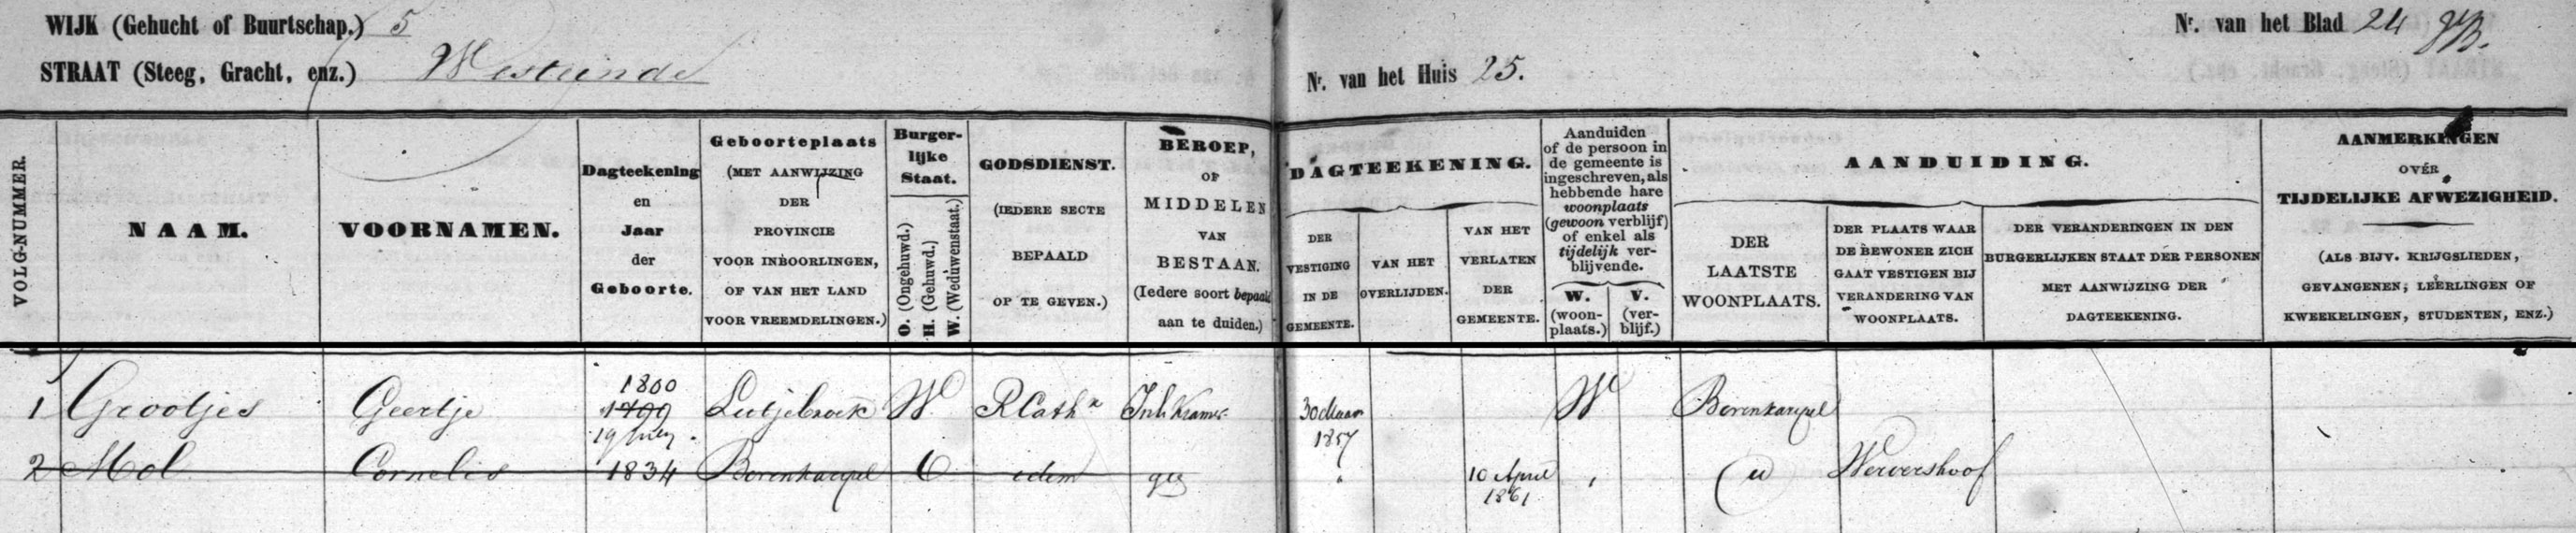 WIJK (Gehucht of Buurtschap.) 5
Nr. van het Blad 24
STRAAT (Steeg, Gracht, enz.) Westeinde
Nr. van het Huis 25.
VOLG-NUMMER.
NAAM.
VOORNAMEN.
Dagteekening
en
Jaar
der
Geboorte.
Geboorteplaats
(MET AANWIJZING
DER
PROVINCIE
VOOR INBOORLINGEN,
OF VAN HET LAND
VOOR VREEMDELINGEN.)
Burger-
lijke
Staat.
O. (Ongehuwd.)
H. (Gehuwd.)
W. (Weduwenstaat.)
GODSDIENST.
(IEDERE SECTE
BEPAALD
OP TE GEVEN.)
BEROEP,
OF
MIDDELEN
VAN
BESTAAN.
(Iedere soort bepaald
aan te duiden.)
DAGTEEKENING.
DER
VESTIGING
IN DE
GEMEENTE.
VAN HET
OVERLIJDEN.
VAN HET
VERLATEN
DER
GEMEENTE.
Aanduiden
of de persoon in
de gemeente is
ingeschreven, als
hebbende hare
woonplaats
(gewoon verblijf)
of enkel als
tijdelijk ver-
blijvende.
W.
(woon-
plaats.)
V.
(ver-
blijf.)
AANDUIDING.
DER
LAATSTE
WOONPLAATS.
DER PLAATS WAAR
DE BEWONER ZICH
GAAT VESTIGEN BIJ
VERANDERING VAN
WOONPLAATS.
DER VERANDERINGEN IN DEN
BURGERLIJKEN STAAT DER PERSONEN
MET AANWIJZING DER
DAGTEEKENING.
AANMERKINGEN
OVER
TIJDELIJKE AFWEZIGHEID.
(ALS BIJV. KRIJGSLIEDEN,
GEVANGENEN, LEERLINGEN OF
KWEEKELINGEN, STUDENTEN, ENZ.)
1800
1 Grootjes Geertje 1799 Lutjebroek W RCath Inl Kramer 30 Maart W Bovenkarspel
1857
2 Mol Cornelis 1834 Bovenkarspel O idem Wervershoof
10 April
1861